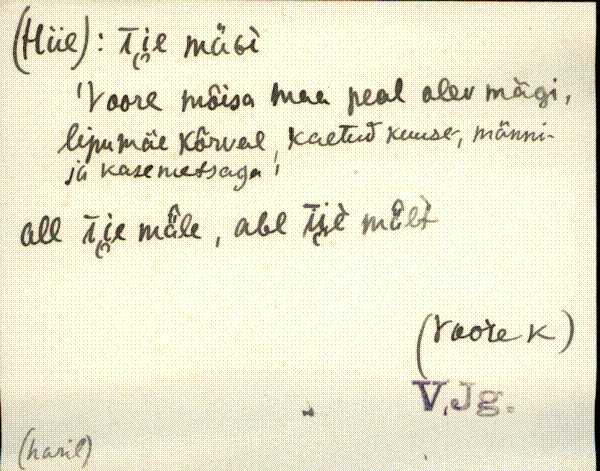 (Hiie): Tiie mäGi
'Voore mõisa maa peal olev mägi,
lipumäe kõrval, kaetud kuuse-, männi-
ja kasemetsaga'
all Tiie mäle, abl Tiie mält
(Voore k)
V.Jg.
(haril)